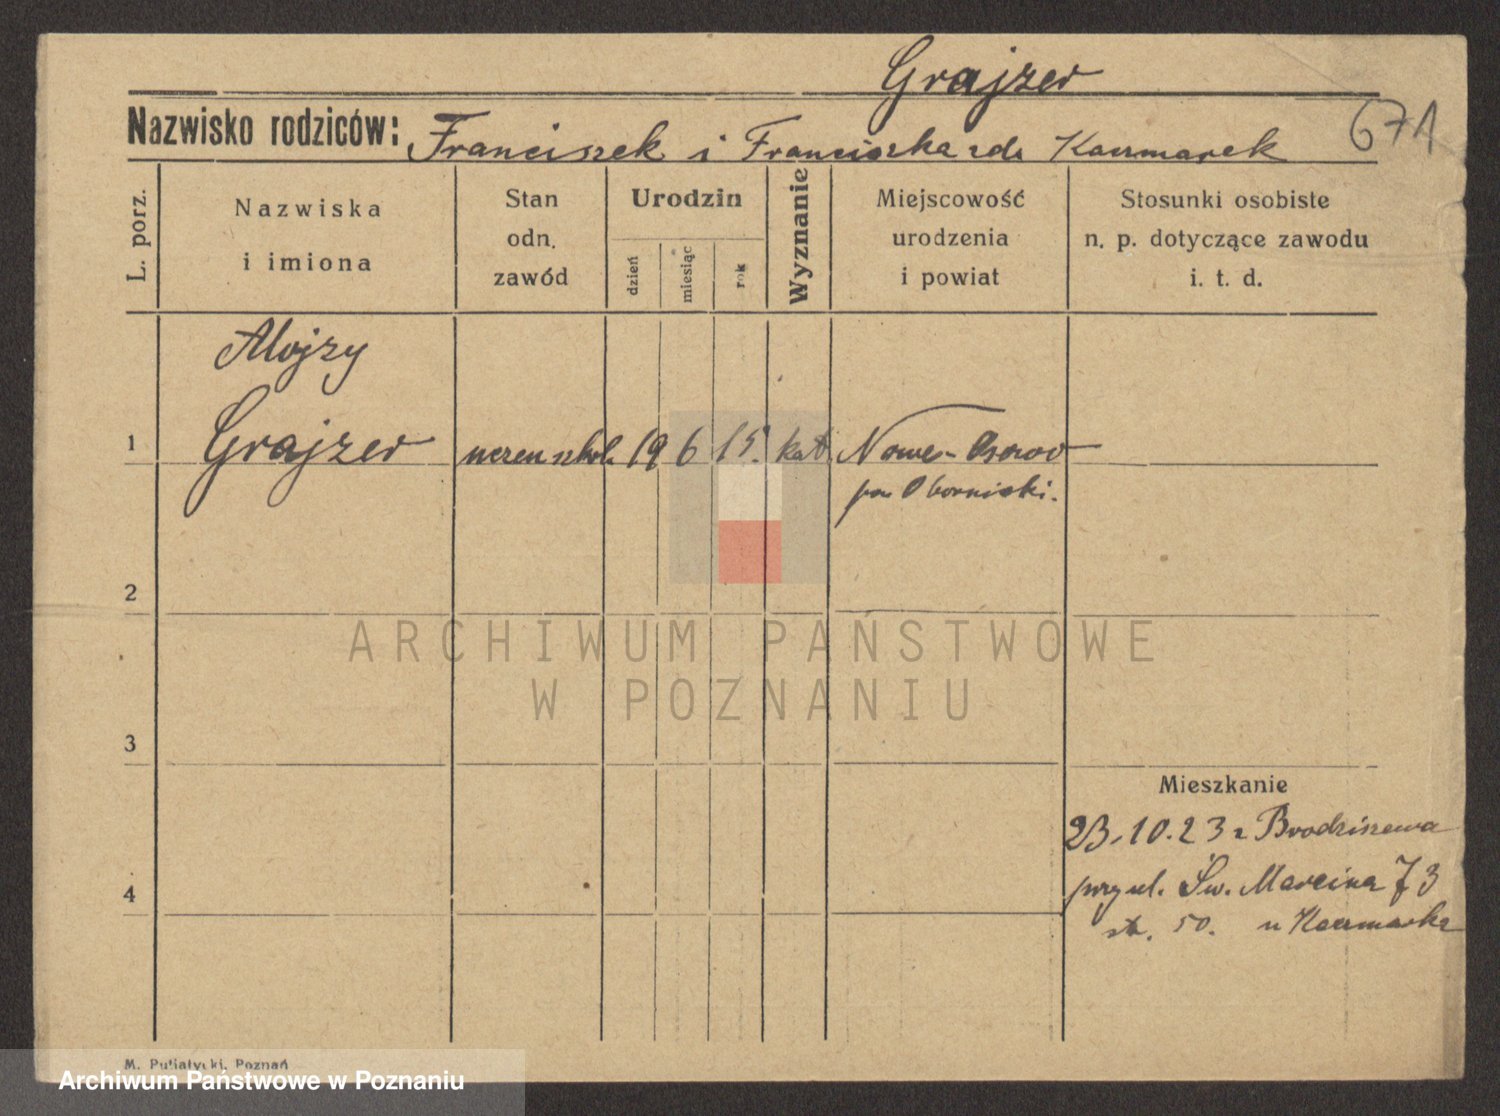 Grajzer
671
Nazwisko rodziców: Franciszek i Franciszka zda Kaczmarek
L. porz.
Nazwiska
i imiona
Stan
odn.
zawód
Urodzin
dzień
miesiąc
rok
Wyznanie
Miejscowość
urodzenia
i powiat
Stosunki osobiste
n. p. dotyczące zawodu
i. t. d.
Alojzy
1 Grajzer uczeń szkol. 19 6 15. kat Nowe-Osowo
pow Obornicki.
2
ARCHIWUM PAŃSTWOWE
W POZNANIU
3
Mieszkanie
23.10.23 z Brodziszewa
4 przy ul. Św. Marcina 73
st. 50. u Kaczmarka
M. Putiatycki, Poznań
Archiwum Państwowe w Poznaniu